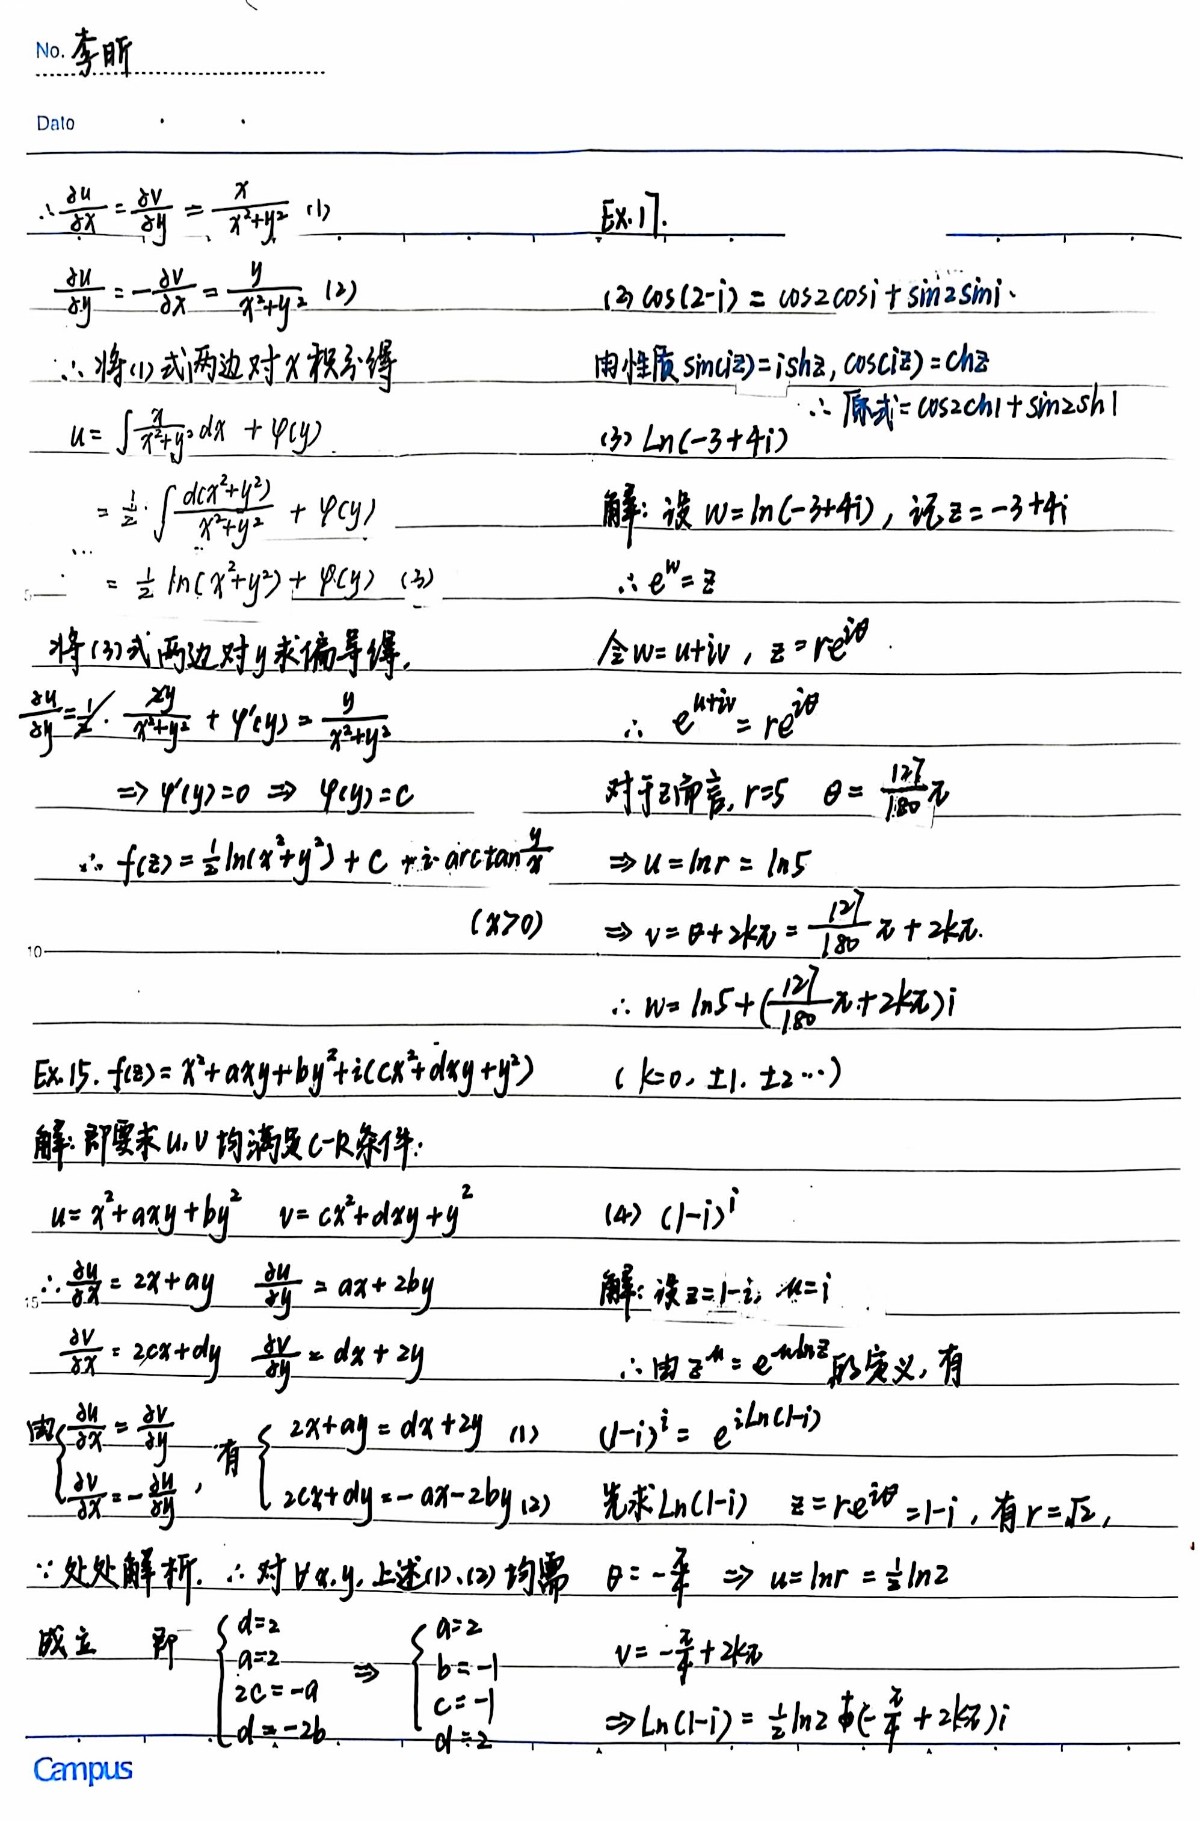 No. 李昕
Date
∴ ∂u/∂x = ∂v/∂y = x/(x²+y²) (1)
∂u/∂y = -∂v/∂x = y/(x²+y²) (2)
∴ 将(1)式两边对x积分得
u = ∫ x/(x²+y²) dx + φ(y)
= 1/2 · ∫ d(x²+y²)/(x²+y²) + φ(y)
= 1/2 ln(x²+y²) + φ(y) (3)
将(3)式两边对y求偏导得.
∂u/∂y = 1/2 · 2y/(x²+y²) + φ'(y) = y/(x²+y²)
⇒ φ'(y)=0 ⇒ φ(y)=C
∴ f(z) = 1/2 ln(x²+y²) + C + i arctan y/x
(x>0)
Ex.15. f(z) = x²+axy+by²+i(cx²+dxy+y²)
解: 即要求 u,v 均满足 C-R条件:
u = x²+axy+by² v = cx²+dxy+y²
∴ ∂u/∂x = 2x+ay ∂u/∂y = ax+2by
∂v/∂x = 2cx+dy ∂v/∂y = dx+2y
由 { ∂u/∂x = ∂v/∂y , 有 { 2x+ay = dx+2y (1)
∂v/∂x = -∂u/∂y 2cx+dy = -ax-2by (2)
∵ 处处解析. ∴ 对∀x,y, 上述(1)、(2) 均需
成立 即 { d=2 ⇒ { a=2
a=2 b=-1
2c=-a c=-1
d=-2b d=2
Ex.17.
(2) cos(2-i) = cos2cosi + sin2sini.
由性质 sin(iz)=ishz, cos(iz)=chz
∴ 原式=cos2ch1+sin2sh1
(3) Ln(-3+4i)
解: 设 w=ln(-3+4i), 记z=-3+4i
∴ e^w = z
令 w=u+iv, z=re^{iθ}
∴ e^{u+iv} = re^{iθ}
对于z而言, r=5 θ = 127/180 π
⇒ u = lnr = ln5
⇒ v = θ+2kπ = 127/180 π + 2kπ.
∴ w = ln5 + (127/180 π+2kπ)i
( k=0, ±1, ±2 ⋯)
(4) (1-i)^i
解: 设 z=1-i, u=i
∴ 由 z^u = e^{uLnz} 的定义, 有
(1-i)^i = e^{iLn(1-i)}
先求Ln(1-i) z=re^{iθ}=1-i, 有 r=√2,
θ = -π/4 ⇒ u = lnr = 1/2 ln2
v = -π/4 + 2kπ
⇒ Ln(1-i) = 1/2 ln2 + (-π/4 + 2kπ)i
5
10
15
Campus